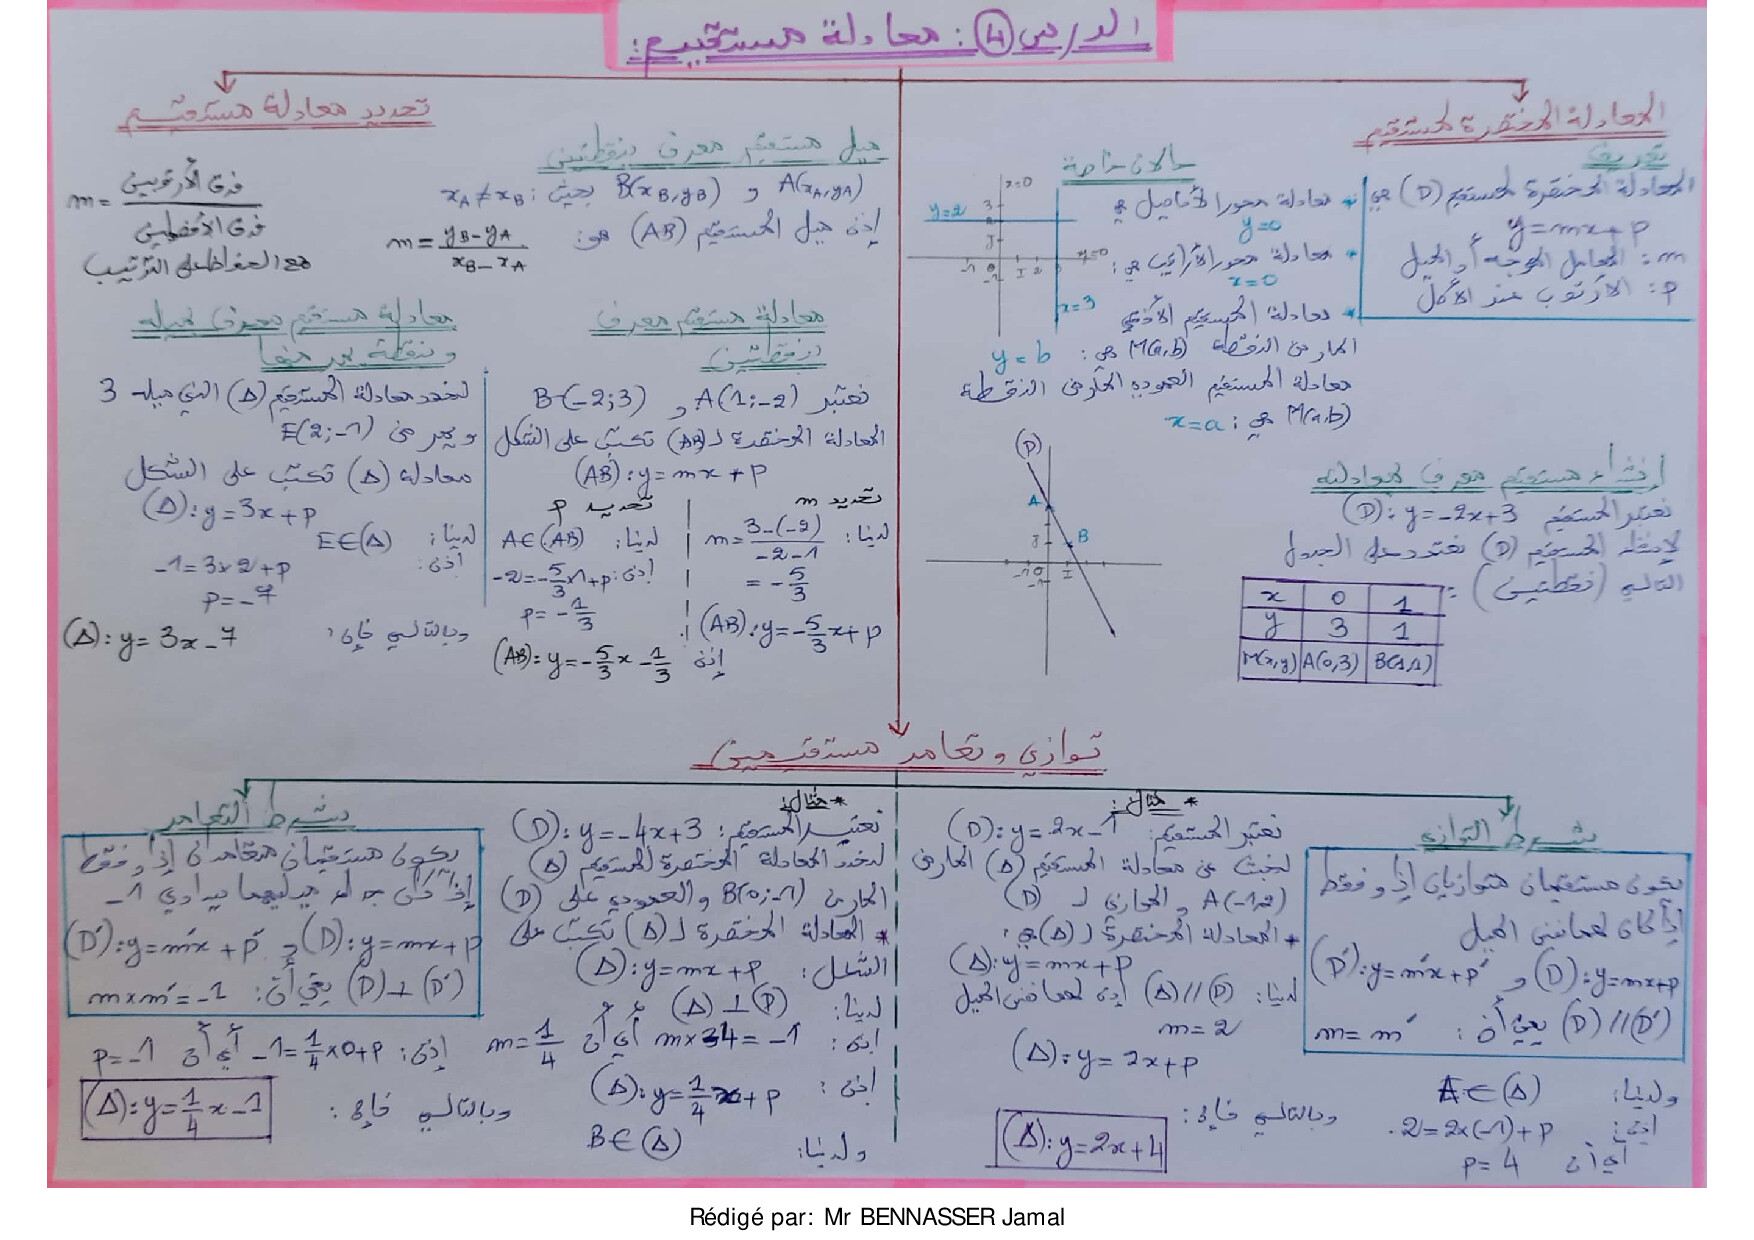 الدرس 4 : معادلة مستقيم:
المعادلة المختصرة لمستقيم
تعريف
المعادلة المختصرة لمستقيم (D) هي
y=mx+p
m: المعامل الموجه أو الميل
p: الأرتوب عند الأصل
حالات خاصة
* معادلة محور الأفاصيل هي
y=0
* معادلة محور الأراتيب هي:
x=0
* معادلة المستقيم الأفقي
المار من النقطة M(a,b) هي: y=b
معادلة المستقيم العمودي المار من النقطة
M(a,b) هي: x=a
x=0
y=2
y=0
x=3
إنشاء مستقيم معرف بمعادلته
نعتبر المستقيم (D): y=-2x+3
لإنشاء المستقيم (D) نعتمد على الجدول
التالي (نقطتين):
x 0 1
y 3 1
M(x,y) A(0,3) B(1,1)
(D)
A
B
تحديد معادلة مستقيم
ميل مستقيم معرف بنقطتين
A(xA,yA) و B(xB,yB) بحيث: xA≠xB
إذن ميل المستقيم (AB) هو: m = (yB-yA)/(xB-xA)
m = فرق الأرتوبين / فرق الأفصولين
مع الحفاظ على الترتيب
معادلة مستقيم معرف
بنقطتين
نعتبر A(1;-2) و B(-2;3)
المعادلة المختصرة لـ (AB) تكتب على الشكل
(AB): y=mx+p
تحديد m
لدينا: m = (3-(-2))/(-2-1)
= -5/3
(AB): y=-5/3x+p
تحديد p
لدينا: A∈(AB)
إذن: -2=-5/3×1+p
p=-1/3
إذن (AB): y=-5/3x-1/3
معادلة مستقيم معرف بميله
ونقطة يمر منها
لنحدد معادلة المستقيم (Δ) الذي ميله 3
ويمر من E(2;-1)
معادلة (Δ) تكتب على الشكل
(Δ): y=3x+p
لدينا: E∈(Δ)
إذن: -1=3×2+p
p=-7
وبالتالي فإن: (Δ): y=3x-7
توازي و تعامد مستقيمين
شرط التوازي
يكون مستقيمان متوازيان إذا وفقط
إذا كان لهما نفس الميل
(D): y=mx+p و (D'): y=m'x+p'
(D)//(D') يعني أن: m=m'
* مثال:
نعتبر المستقيم: (D): y=2x-1
لنبحث عن معادلة المستقيم (Δ) المار من
A(-1,2) و الموازي لـ (D)
* المعادلة المختصرة لـ (Δ) هي:
(Δ): y=mx+p
لدينا: (Δ)//(D) إذن لهما نفس الميل
m=2
(Δ): y=2x+p
ولدينا: A∈(Δ)
إذن: 2=2×(-1)+p
أي أن p=4
وبالتالي فإن: (Δ): y=2x+4
شرط التعامد
يكون مستقيمان متعامدان إذا وفقط
إذا كان جداء ميليهما يساوي -1
(D): y=mx+p و (D'): y=m'x+p'
(D)⊥(D') يعني أن: m×m'=-1
* مثال:
نعتبر المستقيم: (D): y=-4x+3
لنحدد المعادلة المختصرة للمستقيم (Δ)
المار من B(0;-1) والعمودي على (D)
* المعادلة المختصرة لـ (Δ) تكتب على
الشكل: (Δ): y=mx+p
لدينا: (Δ)⊥(D)
إذن: m×-4=-1 أي أن m=1/4
إذن: (Δ): y=1/4x+p
ولدينا: B∈(Δ)
إذن: -1=1/4×0+p أي أن p=-1
وبالتالي فإن: (Δ): y=1/4x-1
Rédigé par: Mr BENNASSER Jamal